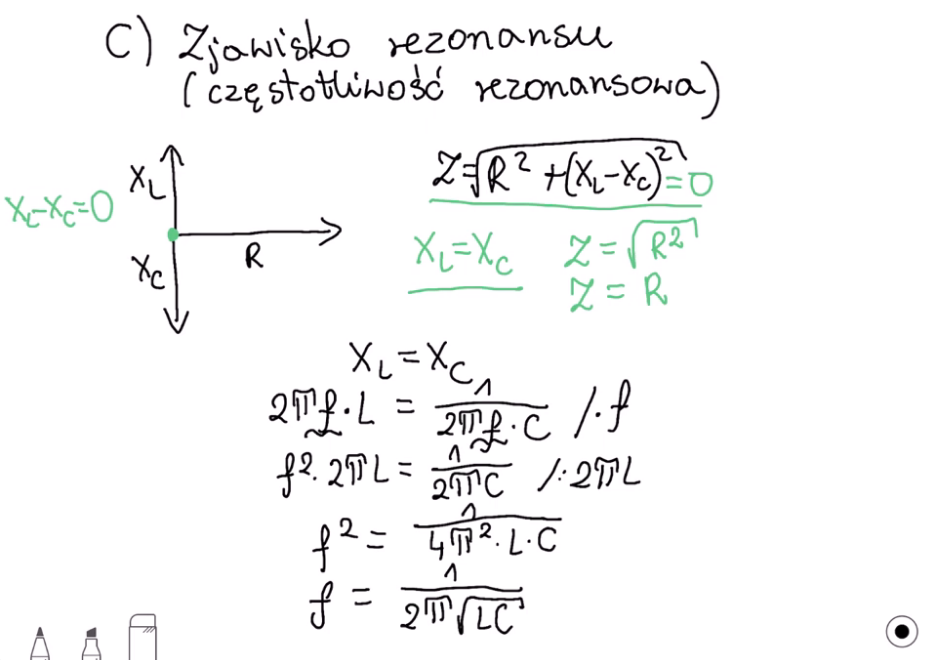 C) Zjawisko rezonansu
(częstotliwość rezonansowa)
X_L
X_L-X_C=0
X_C
R
Z=√(R²+(X_L-X_C)²) =0
X_L=X_C Z=√(R²)
Z=R
X_L=X_C
2πf·L = 1/(2πf·C) /·f
f²·2πL = 1/(2πC) /:2πL
f² = 1/(4π²·L·C)
f = 1/(2π√(LC))